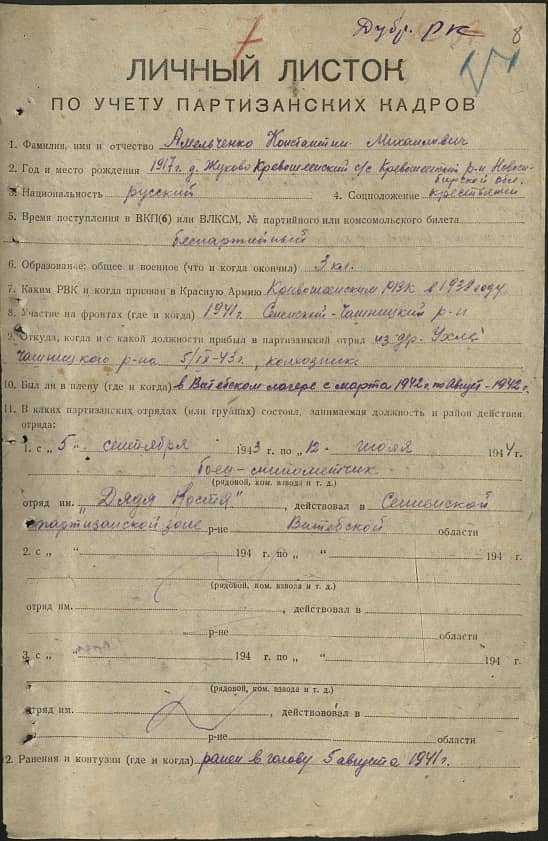 7
Дубр. РК
8
ЛИЧНЫЙ ЛИСТОК
ПО УЧЕТУ ПАРТИЗАНСКИХ КАДРОВ
1. Фамилия, имя и отчество Амельченко Константин Михайлович
2. Год и место рождения 1917 г. д. Жуково Кревошеенский с/с Кревошеенский р-н Новоси-
бирской обл.
3. Национальность русский 4. Соцположение крестьянин
5. Время поступления в ВКП(б) или ВЛКСМ, № партийного или комсомольского билета
беспартийный
6. Образование: общее и военное (что и когда окончил) 3 кл.
7. Каким РВК и когда призван в Красную Армию Кривошеенским РВК в 1938 году
8. Участие на фронтах (где и когда) 1941 г. Сененский-Чашницкий р-н
9. Откуда, когда и с какой должности прибыл в партизанский отряд из др. Ухлы
Чашницкого р-на 5/IX-43 г., колхозник.
10. Был ли в плену (где и когда) в Витебском лагере с марта 1942 г. по Август-1942 г.
11. В каких партизанских отрядах (или группах) состоял, занимаемая должность и район действия
отряда:
1. с „ 5 " сентября 1943 г. по „ 12 " июля 1944 г.
боец-минометчик
(рядовой, ком. взвода и т. д.)
отряд им. "Дядя Костя", действовал в Сенненской
партизанской зоне р-не Витебской области
2. с „ " 194 г. по „ " 194 г.
(рядовой, ком. взвода и т. д.)
отряд им. , действовал в
р-не области
3. с „ " 194 г. по „ " 194 г.
(рядовой, ком. взвода и т. д.)
отряд им. , действововал в
р-не области
12. Ранения и контузии (где и когда) ранен в голову 5 августа 1941 г.